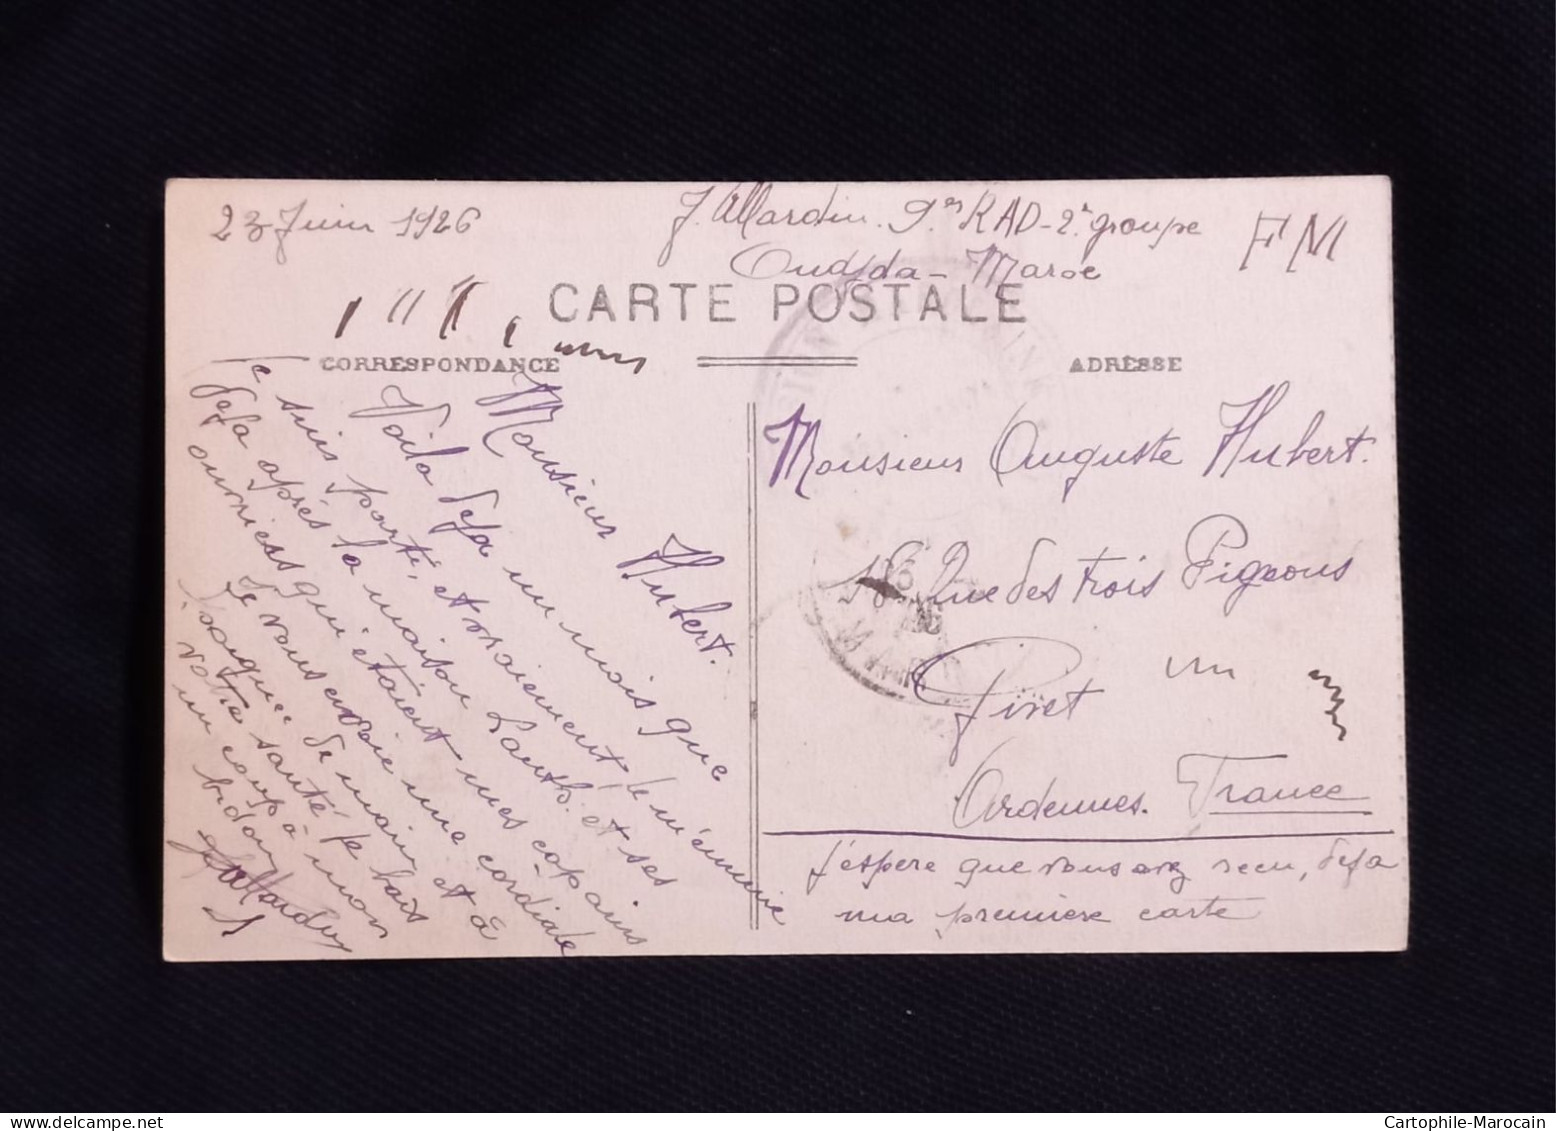 23 Juin 1926
J. Allardin. 9es RAD-2e groupe
Oudjda - Maroc
FM
CARTE POSTALE
CORRESPONDANCE
ADRESSE
Monsieur Hubert.
Voila deja un mois que
je suis parti, et vraiement je m'ennuie
deja après la maison et ses
ouvriers qui étaient mes copains
Je vous envoie une cordiale
poignée de main et à
votre santé je bois
un coup à mon
bidon
J Allardin
Monsieur Auguste Hubert.
18 Rue des trois Pigeons
Givet
Ardennes. France
j'espere que vous avez recu, deja
ma premiere carte
Cartophile-Marocain